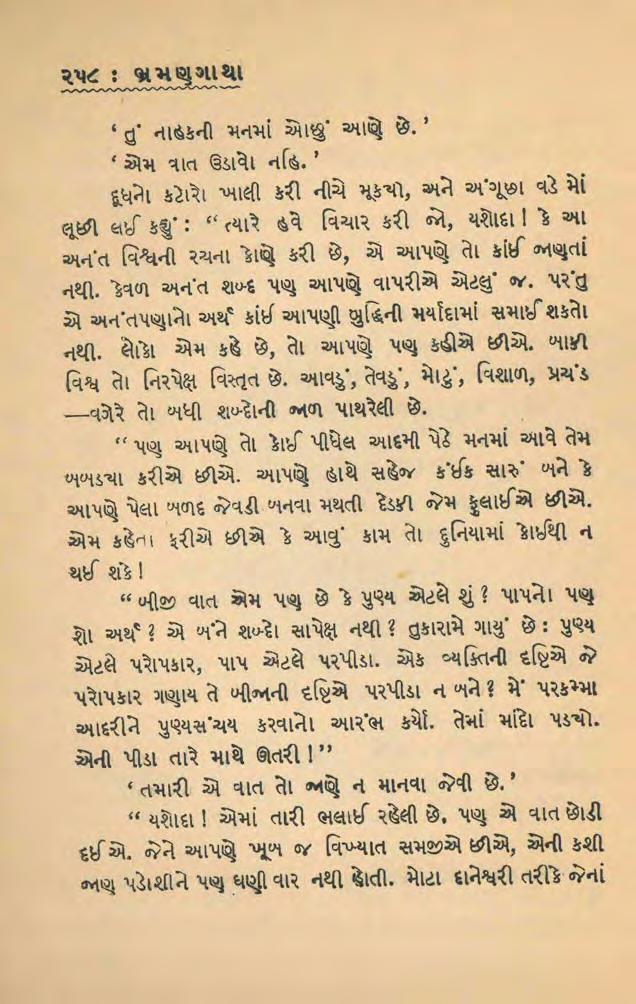 ૨૫૮ : ભ્રમણગાથા
‘ તું નાહકની મનમાં ઓછું આણે છે. ’
‘ એમ વાત ઉડાવો નહિ. ’
દૂધનો કટોરો ખાલી કરી નીચે મૂક્યો, અને અંગૂછા વડે મોં
લૂછી લઈ કહ્યું : “ ત્યારે હવે વિચાર કરી જો, યશોદા ! કે આ
અનંત વિશ્વની રચના કોણે કરી છે, એ આપણે તો કાંઈ જાણતાં
નથી. કેવળ અનંત શબ્દ પણ આપણે વાપરીએ એટલું જ. પરંતુ
એ અનંતપણાનો અર્થ કાંઈ આપણી બુદ્ધિની મર્યાદામાં સમાઈ શકતો
નથી. લોકો એમ કહે છે, તો આપણે પણ કહીએ છીએ. બાકી
વિશ્વ તો નિરપેક્ષ વિસ્તૃત છે. આવડું, તેવડું, મોટું, વિશાળ, પ્રચંડ
—વગેરે તો બધી શબ્દોની જાળ પાથરેલી છે.
“ પણ આપણે તો કોઈ પીધેલ આદમી પેઠે મનમાં આવે તેમ
બબડ્યા કરીએ છીએ. આપણે હાથે સહેજ કંઈક સારું બને કે
આપણે પેલા બળદ જેવડી બનવા મથતી દેડકી જેમ ફુલાઈએ છીએ.
એમ કહેતા ફરીએ છીએ કે આવું કામ તો દુનિયામાં કોઈથી ન
થઈ શકે !
“ બીજી વાત એમ પણ છે કે પુણ્ય એટલે શું ? પાપનો પણ
શો અર્થ ? એ બંને શબ્દો સાપેક્ષ નથી ? તુકારામે ગાયું છે : પુણ્ય
એટલે પરોપકાર, પાપ એટલે પરપીડા. એક વ્યક્તિની દૃષ્ટિએ જે
પરોપકાર ગણાય તે બીજાની દૃષ્ટિએ પરપીડા ન બને ? મેં પરકમ્મા
આદરીને પુણ્યસંચય કરવાનો આરંભ કર્યો. તેમાં માંદો પડ્યો.
એની પીડા તારે માથે ઊતરી ! ”
‘ તમારી એ વાત તો જાણે ન માનવા જેવી છે. ’
“ યશોદા ! એમાં તારી ભલાઈ રહેલી છે. પણ એ વાત છોડી
દઈએ. જેને આપણે ખૂબ જ વિખ્યાત સમજીએ છીએ, એની કશી
જાણ પડોશીને પણ ઘણી વાર નથી હોતી. મોટા દાનેશ્વરી તરીકે જેનાં